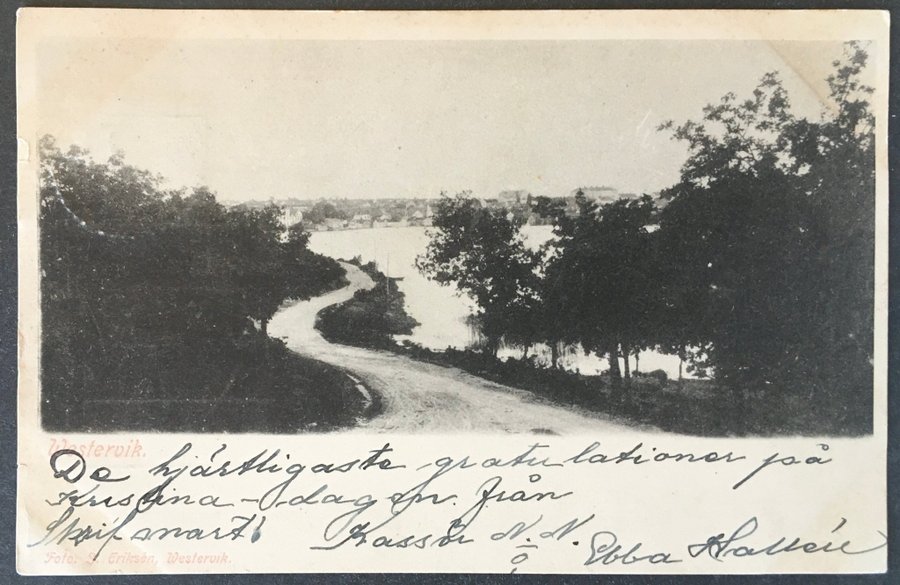 Westervik.
De hjärtligaste gratulationer på
Kristina-dagen från
Skrif snart! Kassör N. N.
o Ebba Hallén
Foto: Eriksén, Westervik.